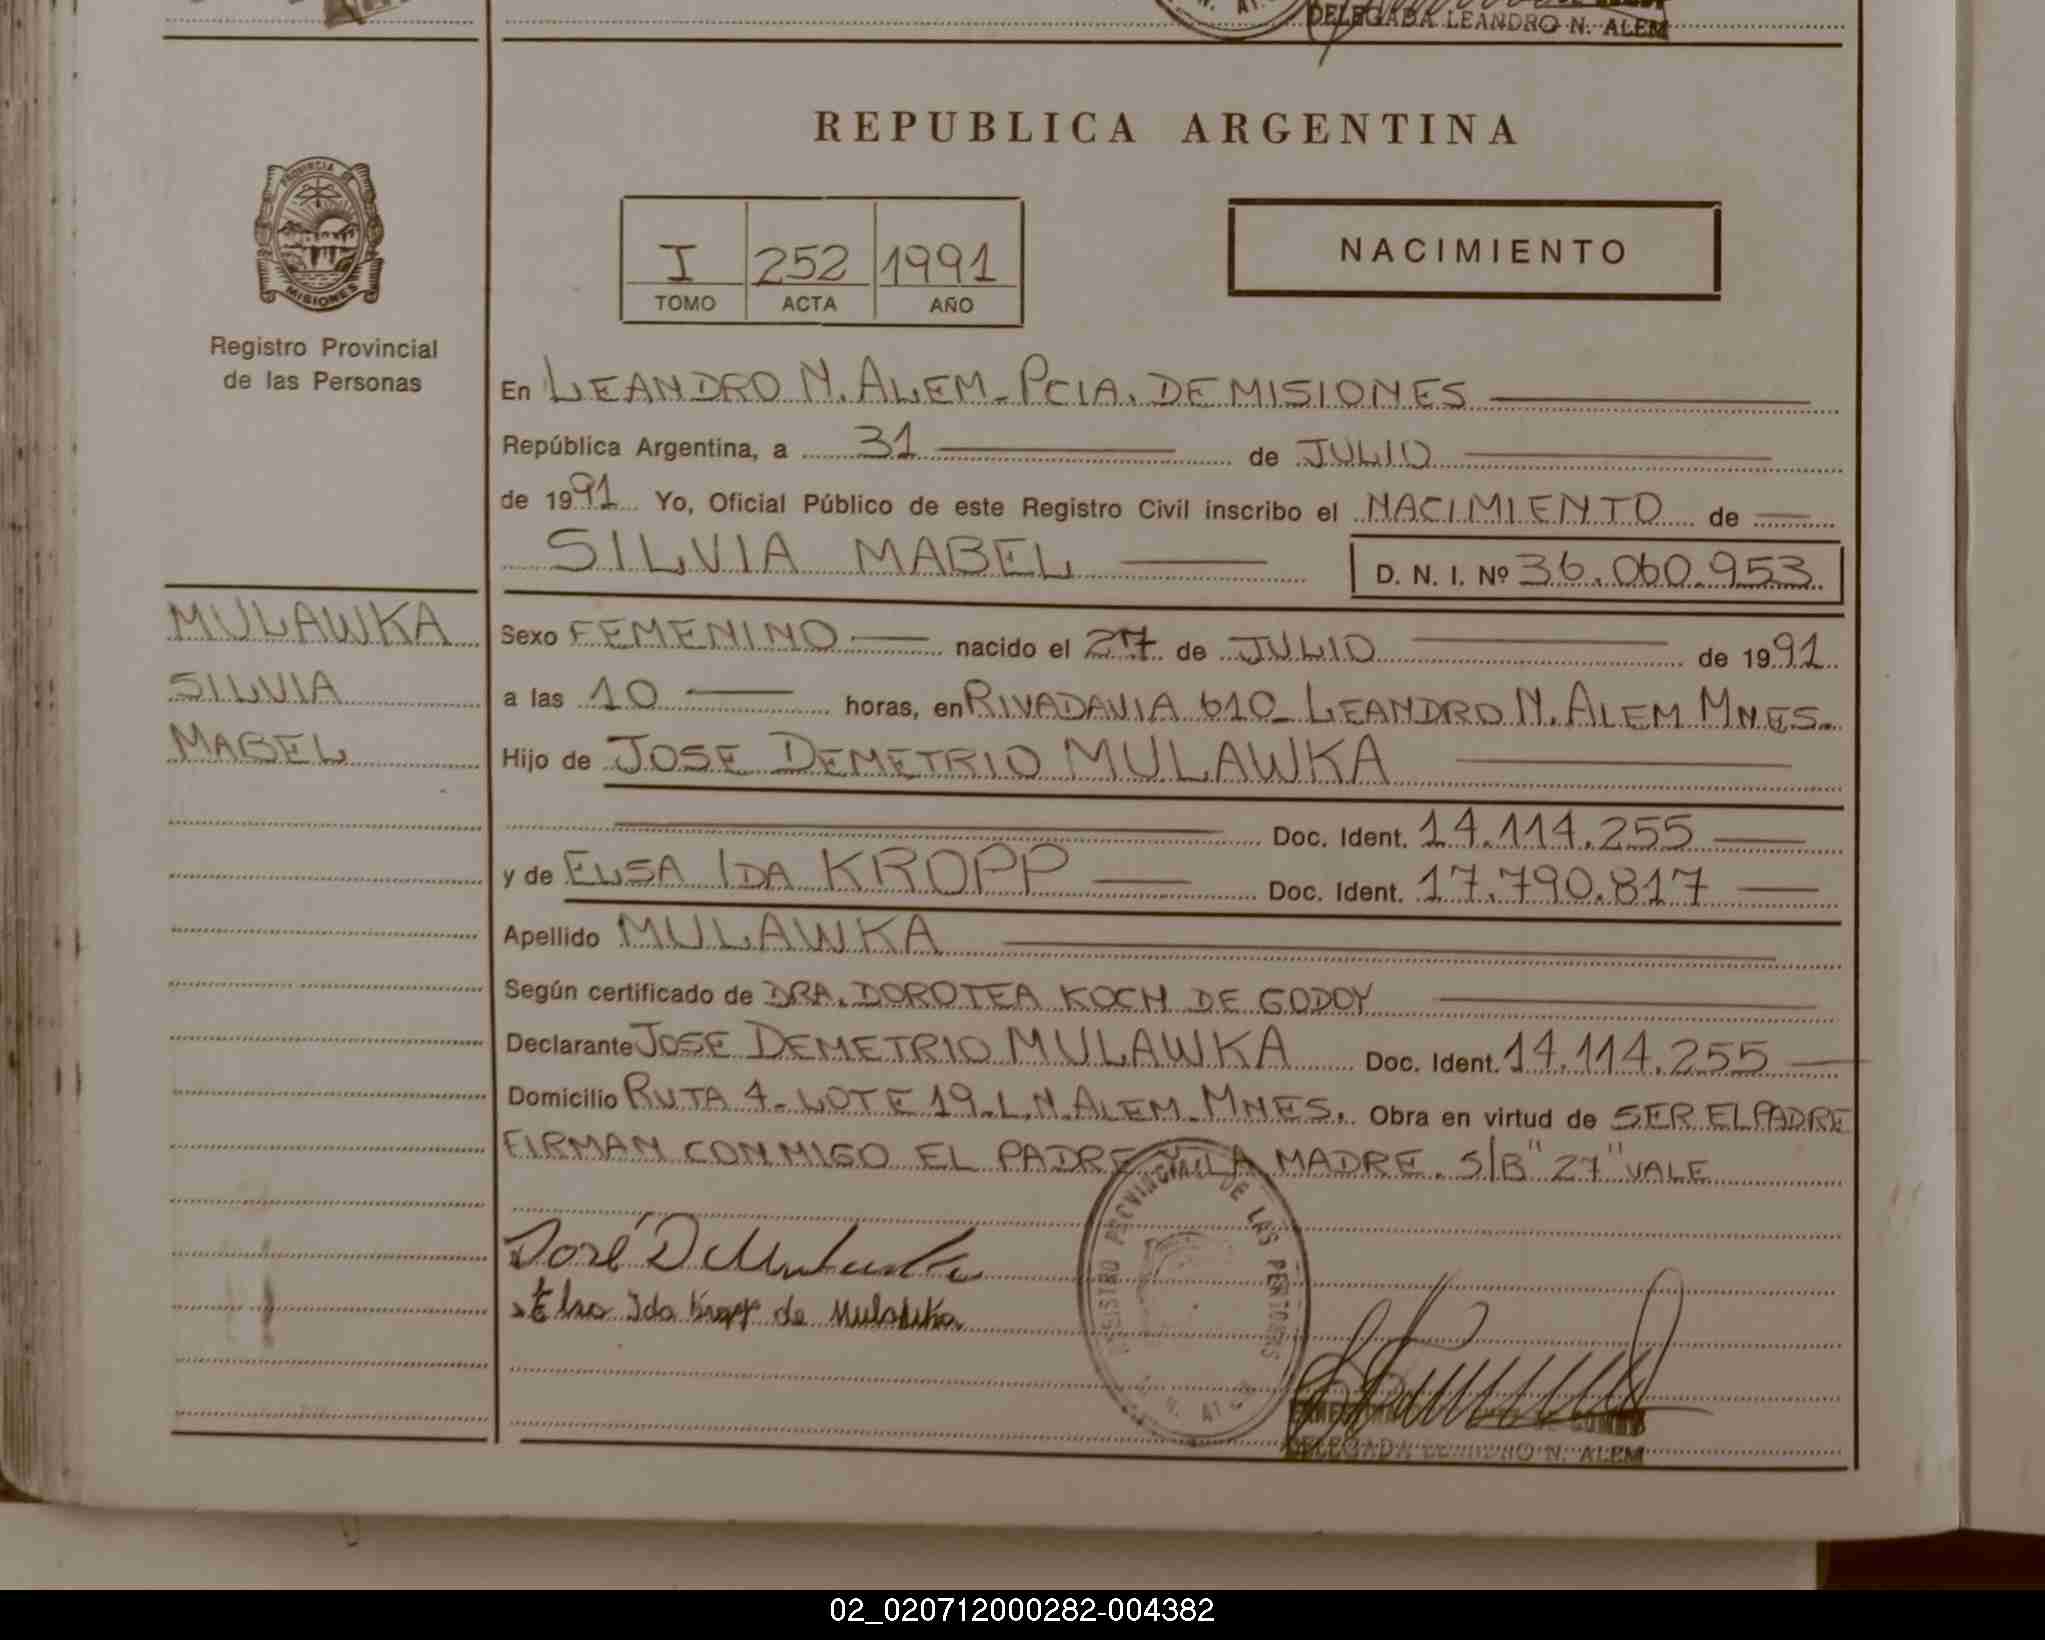 DELEGADA LEANDRO N. ALEM
REPUBLICA ARGENTINA
PROVINCIA
MISIONES
Registro Provincial
de las Personas
I 252 1991
TOMO ACTA AÑO
NACIMIENTO
En LEANDRO N. ALEM - PCIA. DE MISIONES
República Argentina, a 31 de JULIO
de 1991 Yo, Oficial Público de este Registro Civil inscribo el NACIMIENTO de
SILVIA MABEL D. N. I. Nº 36.060.953
MULAWKA
SILVIA
MABEL
Sexo FEMENINO nacido el 27 de JULIO de 1991
a las 10 horas, en RIVADAVIA 610 - LEANDRO N. ALEM MNES.
Hijo de JOSE DEMETRIO MULAWKA
Doc. Ident. 14.114.255
y de ELSA IDA KROPP Doc. Ident. 17.790.817
Apellido MULAWKA
Según certificado de DRA. DOROTEA KOCH DE GODOY
Declarante JOSE DEMETRIO MULAWKA Doc. Ident. 14.114.255
Domicilio RUTA 4 - LOTE 19 - L.N. ALEM - MNES. Obra en virtud de SER EL PADRE
FIRMAN CONMIGO EL PADRE Y LA MADRE. S/B "27" VALE
José D Mulawka
Elsa Ida Kropp de Mulawka
REGISTRO PROVINCIAL DE LAS PERSONAS
DELEGADA LEANDRO N. ALEM
02_020712000282-004382